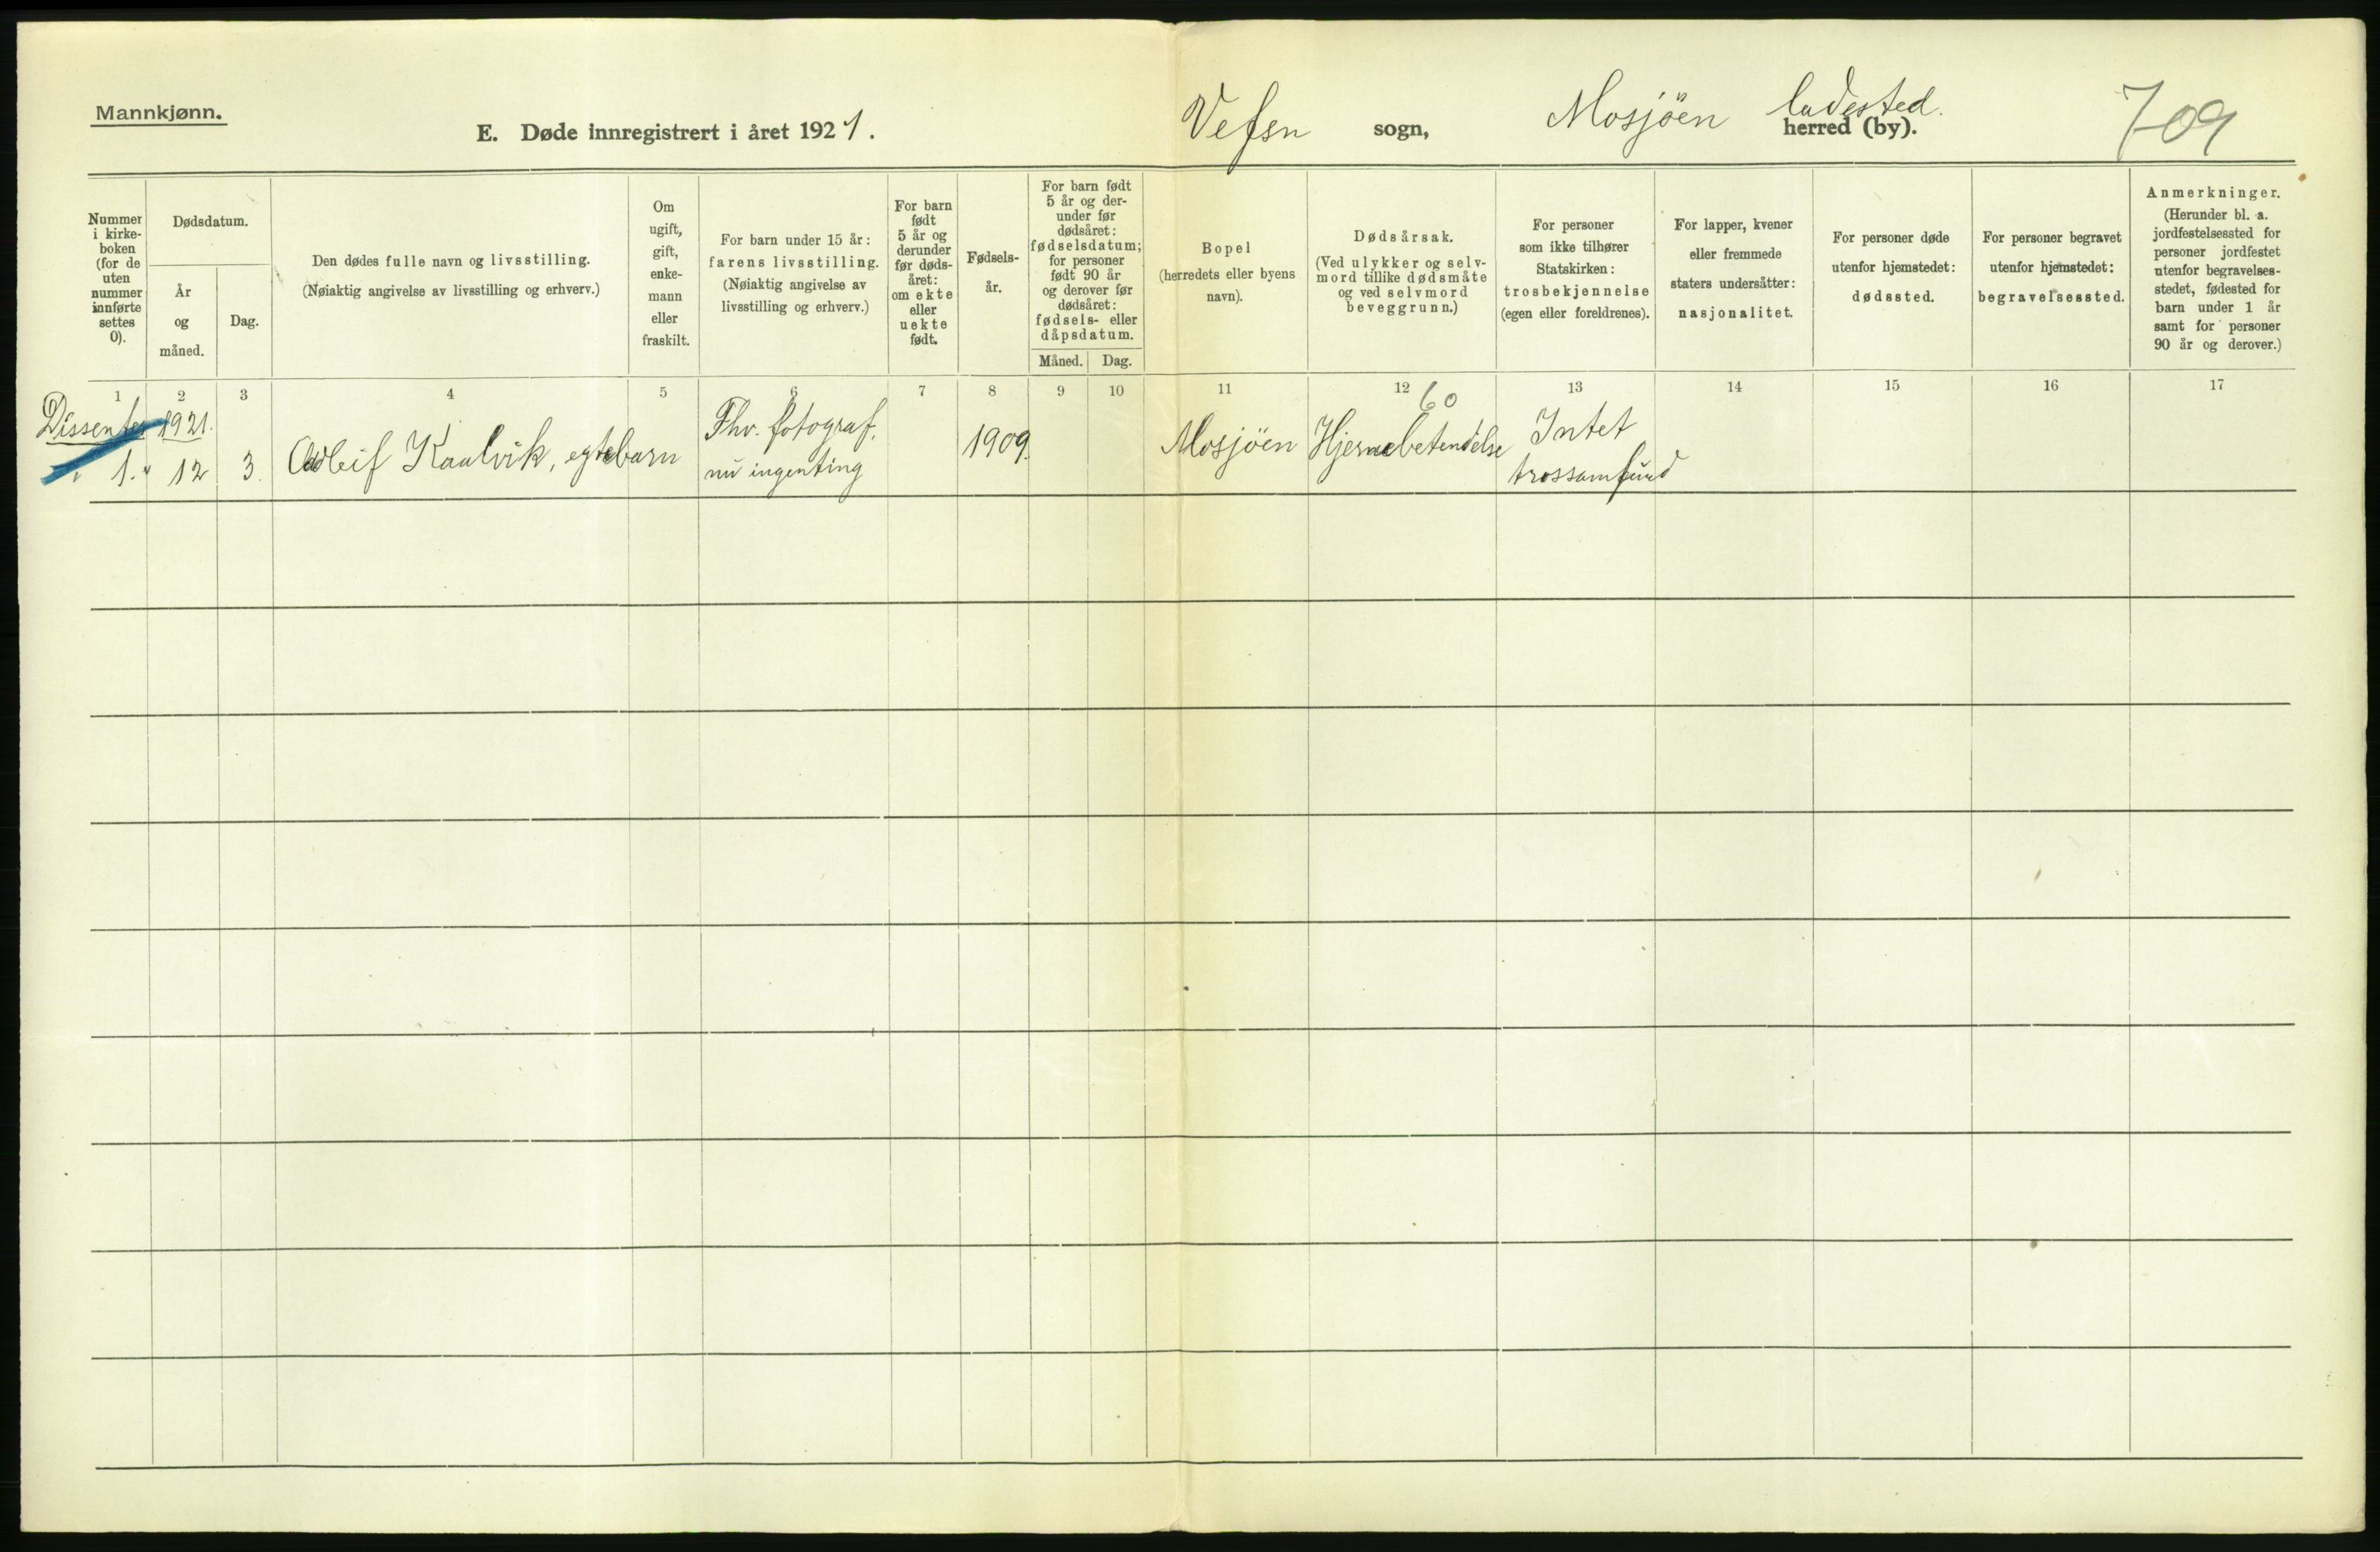 Mannkjønn.
E. Døde innregistrert i året 1921.
Vefsn sogn, Mosjöen ladested herred (by).
709
Nummer
i kirke-
boken
(for de
uten
nummer
innførte
settes
0).
Dødsdatum.
År
og
måned.
Dag.
Den dødes fulle navn og livsstilling.
(Nøiaktig angivelse av livsstilling og erhverv.)
Om
ugift,
gift,
enke-
mann
eller
fraskilt.
For barn under 15 år:
farens livsstilling.
(Nøiaktig angivelse av
livsstilling og erhverv.)
For barn
født
5 år og
derunder
før døds-
året:
om ekte
eller
uekte
født.
Fødsels-
år.
For barn født
5 år og der-
under før
dødsåret:
fødselsdatum;
for personer
født 90 år
og derover før
dødsåret:
fødsels- eller
dåpsdatum.
Måned. Dag.
Bopel
(herredets eller byens
navn).
Dødsårsak.
(Ved ulykker og selv-
mord tillike dødsmåte
og ved selvmord
beveggrunn.)
For personer
som ikke tilhører
Statskirken:
trosbekjennelse
(egen eller foreldrenes).
For lapper, kvener
eller fremmede
staters undersåtter:
nasjonalitet.
For personer døde
utenfor hjemstedet:
dødssted.
For personer begravet
utenfor hjemstedet:
begravelsessted.
Anmerkninger.
(Herunder bl. a.
jordfestelsessted for
personer jordfestet
utenfor begravelses-
stedet, fødested for
barn under 1 år
samt for personer
90 år og derover.)
1 2 3 4 5 6 7 8 9 10 11 12 13 14 15 16 17
60
Dissenter 1921.
" 1. " 12 3. Kaalvik, egtebarn
Fhv. fotograf,
nu ingenting
1909.
Mosjöen
Hjernebetendelse
Intet
trossamfund